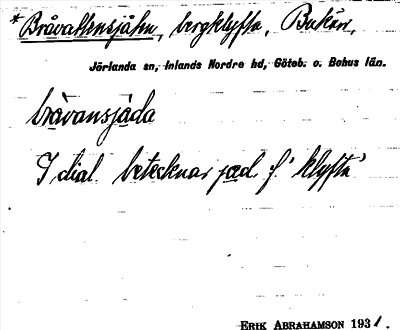 *Bråvattensjähn, bergklyfta, Bukärr,
Jörlanda sn, Inlands Nordre hd, Göteb. o. Bohus län.
bråvansjäda
I dial. betecknar jæd f. 'klyfta'
ERIK ABRAHAMSON 1931.